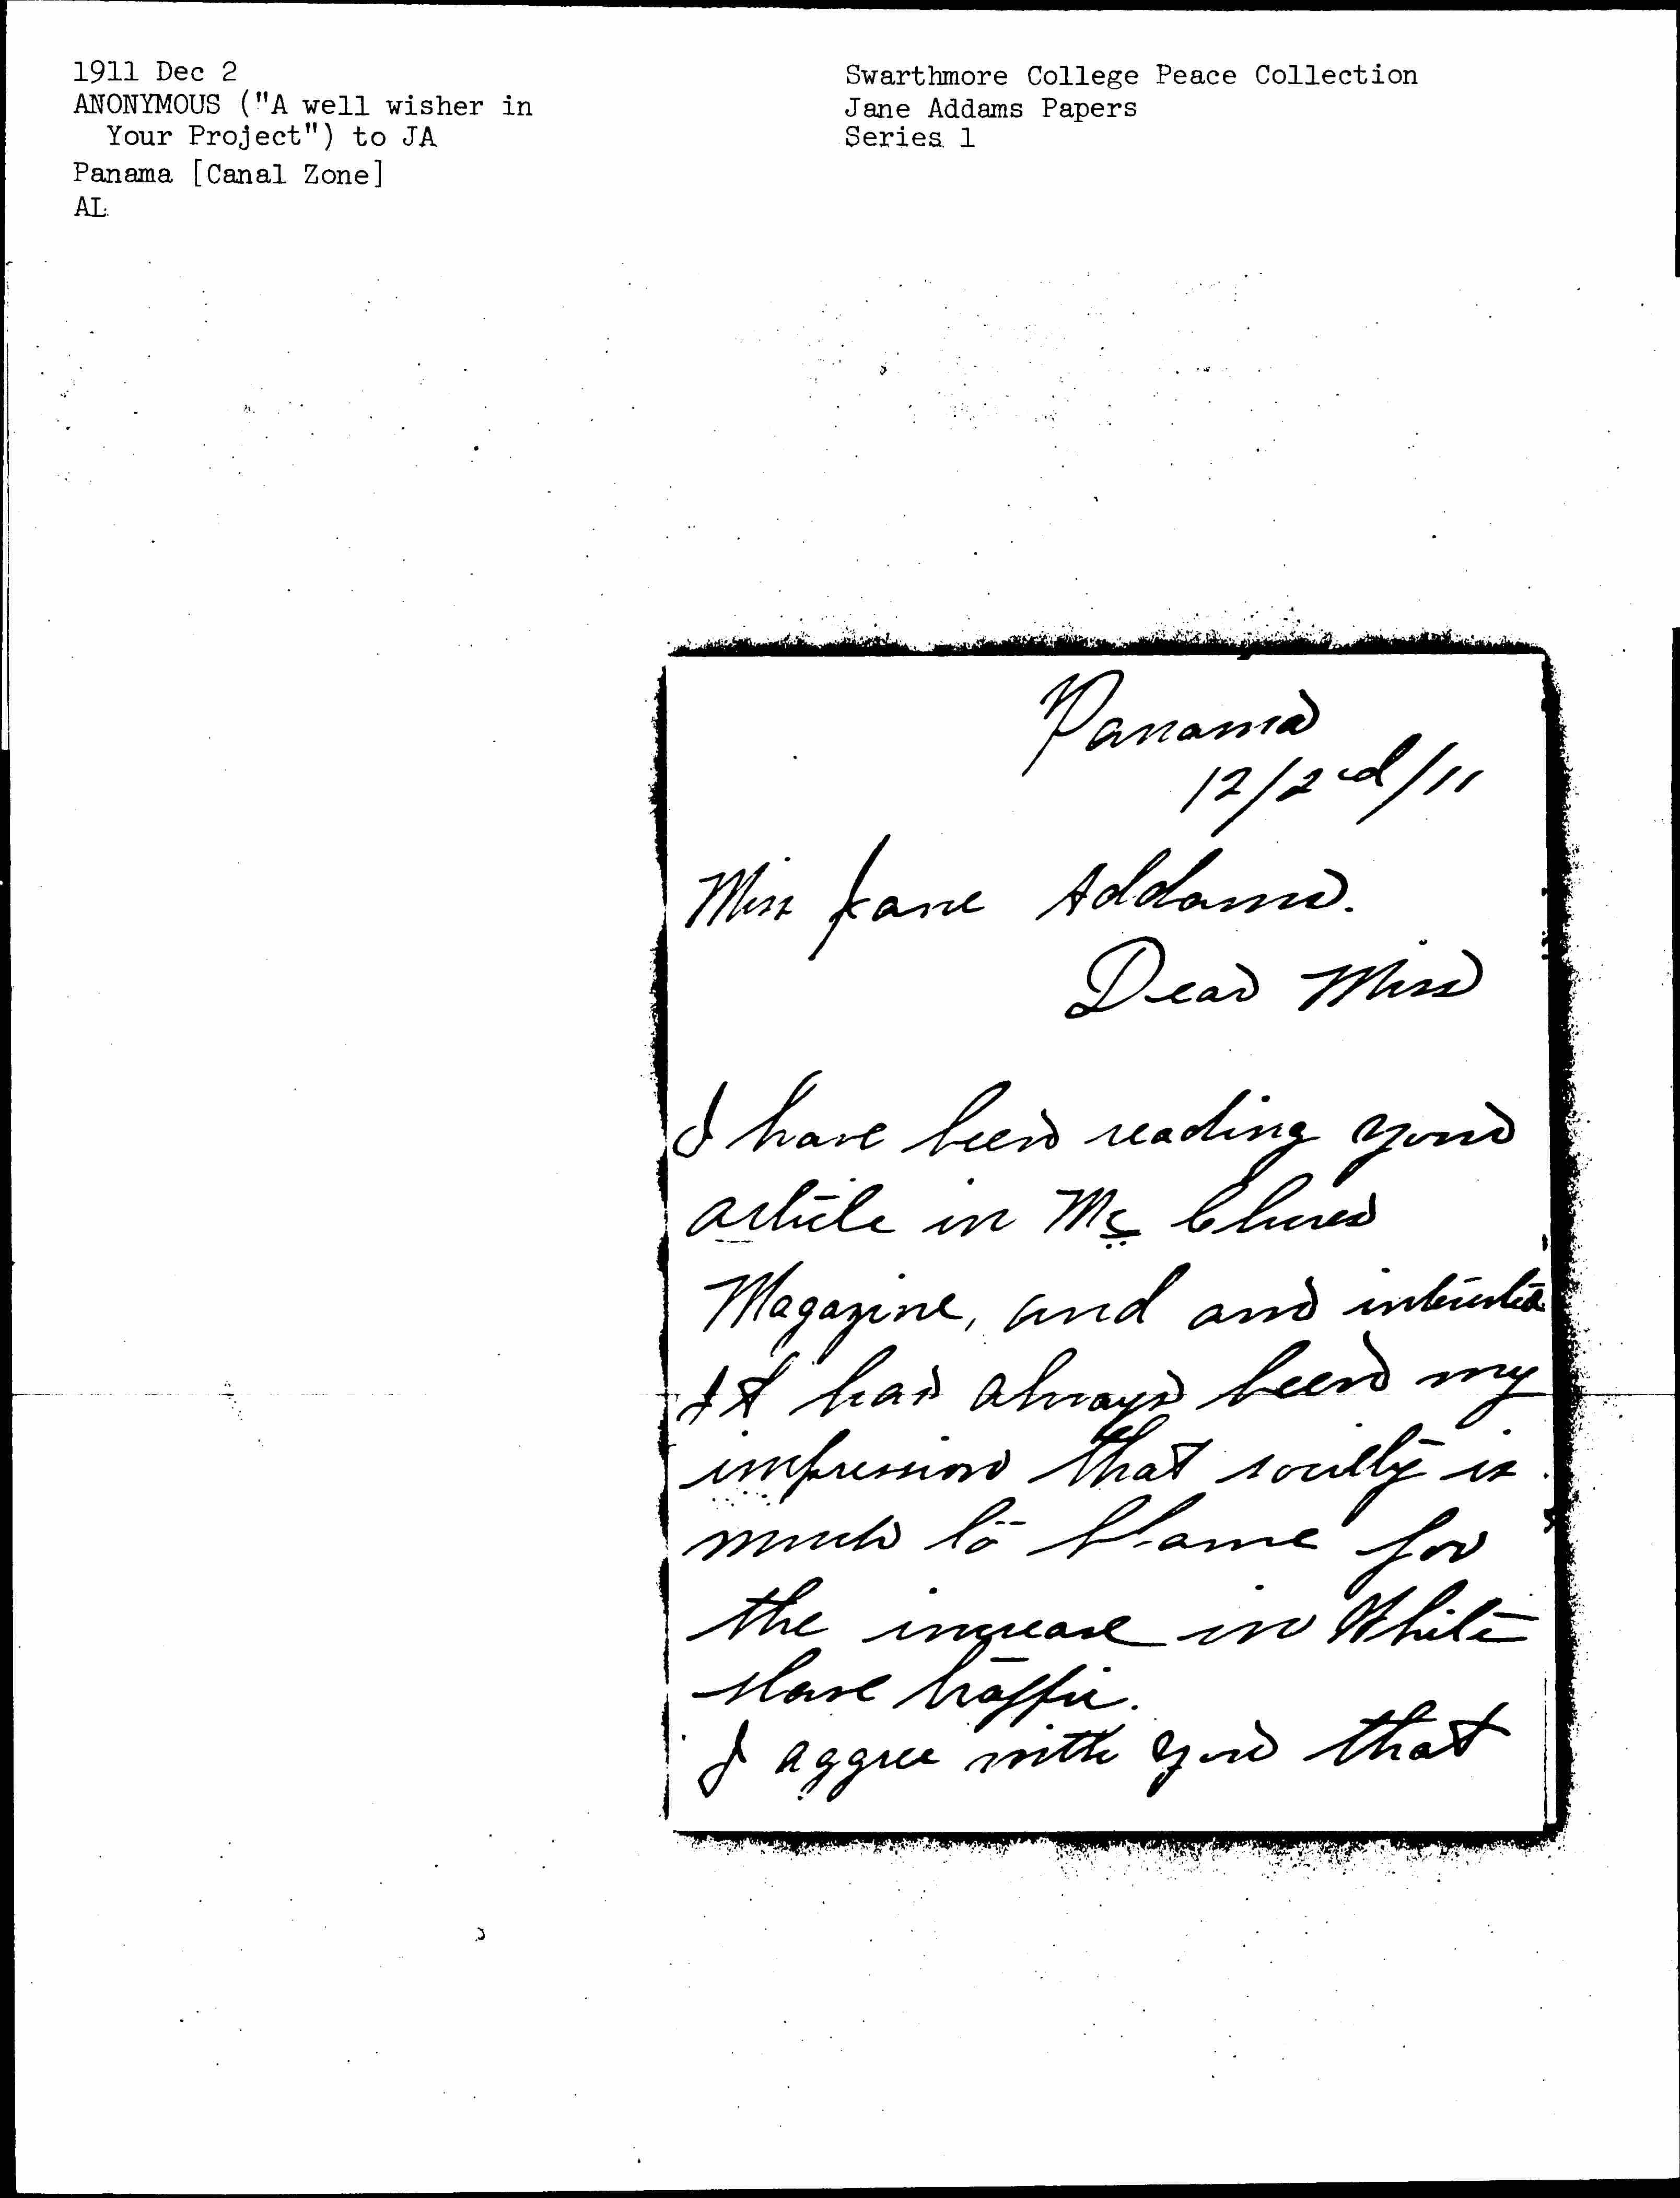 1911 Dec 2
ANONYMOUS ("A well wisher in
Your Project") to JA
Panama [Canal Zone]
AL
Swarthmore College Peace Collection
Jane Addams Papers
Series 1
Panama
12/2nd/11
Miss Jane Addams.
Dear Miss
I have been reading your
article in Mc Clures
Magazine, and am interested
It has always been my
impression that society is
much to blame for
the increase in White
slave traffic.
I aggree with you that